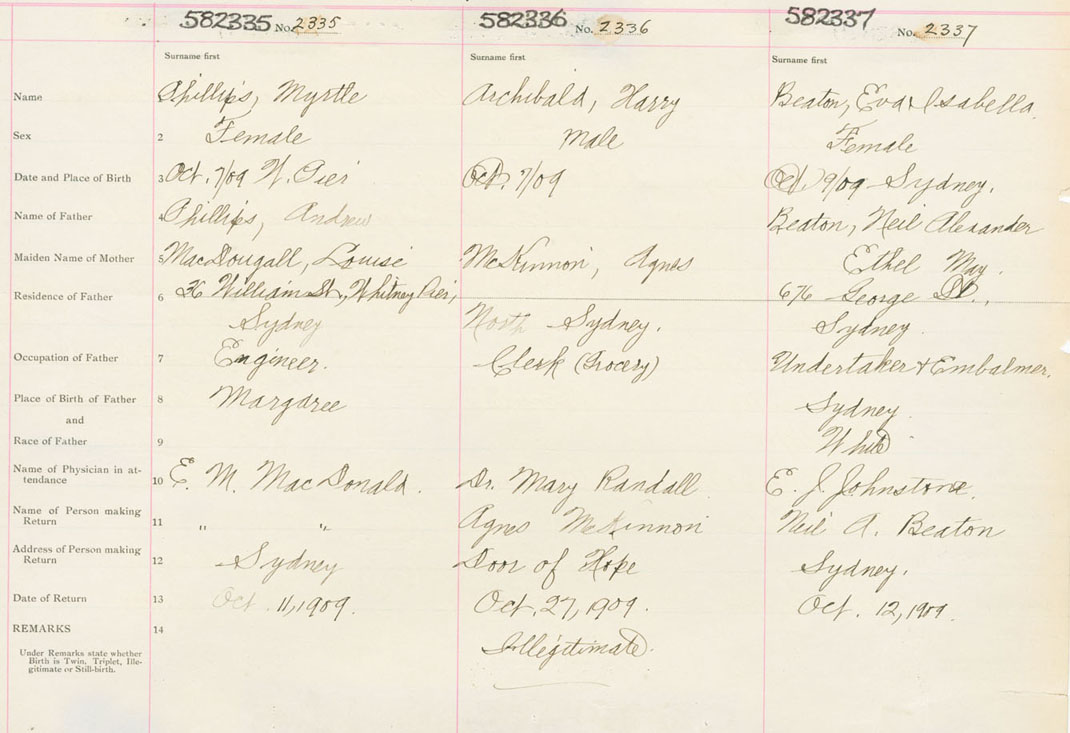 582335 No. 2335 582336 No. 2336 582337 No. 2337
Surname first Surname first Surname first
Name Phillips, Myrtle Archibald, Harry Beaton, Eva Isabella.
Sex 2 Female Male Female
Date and Place of Birth 3 Oct. 7/09 W. Pier Oct. 7/09 Oct. 9/09 Sydney.
Name of Father 4 Phillips, Andrew Beaton, Neil Alexander
Maiden Name of Mother 5 MacDougall, Louise McKinnon, Agnes Ethel May.
Residence of Father 6 36 William St., Whitney Pier, 676 George St.,
Sydney North Sydney. Sydney.
Occupation of Father 7 Engineer. Clerk (Grocery) Undertaker & Embalmer.
Place of Birth of Father 8 Margaree Sydney
and
Race of Father 9 White
Name of Physician in at-
tendance 10 E. M. MacDonald. Dr. Mary Randall E. J. Johnstone.
Name of Person making
Return 11 " " Agnes McKinnon Neil A. Beaton
Address of Person making
Return 12 Sydney Door of Hope Sydney.
Date of Return 13 Oct. 11, 1909. Oct. 27, 1909. Oct. 12, 1909.
REMARKS 14 Illegitimate.
Under Remarks state whether
Birth is Twin, Triplet, Ille-
gitimate or Still-birth.